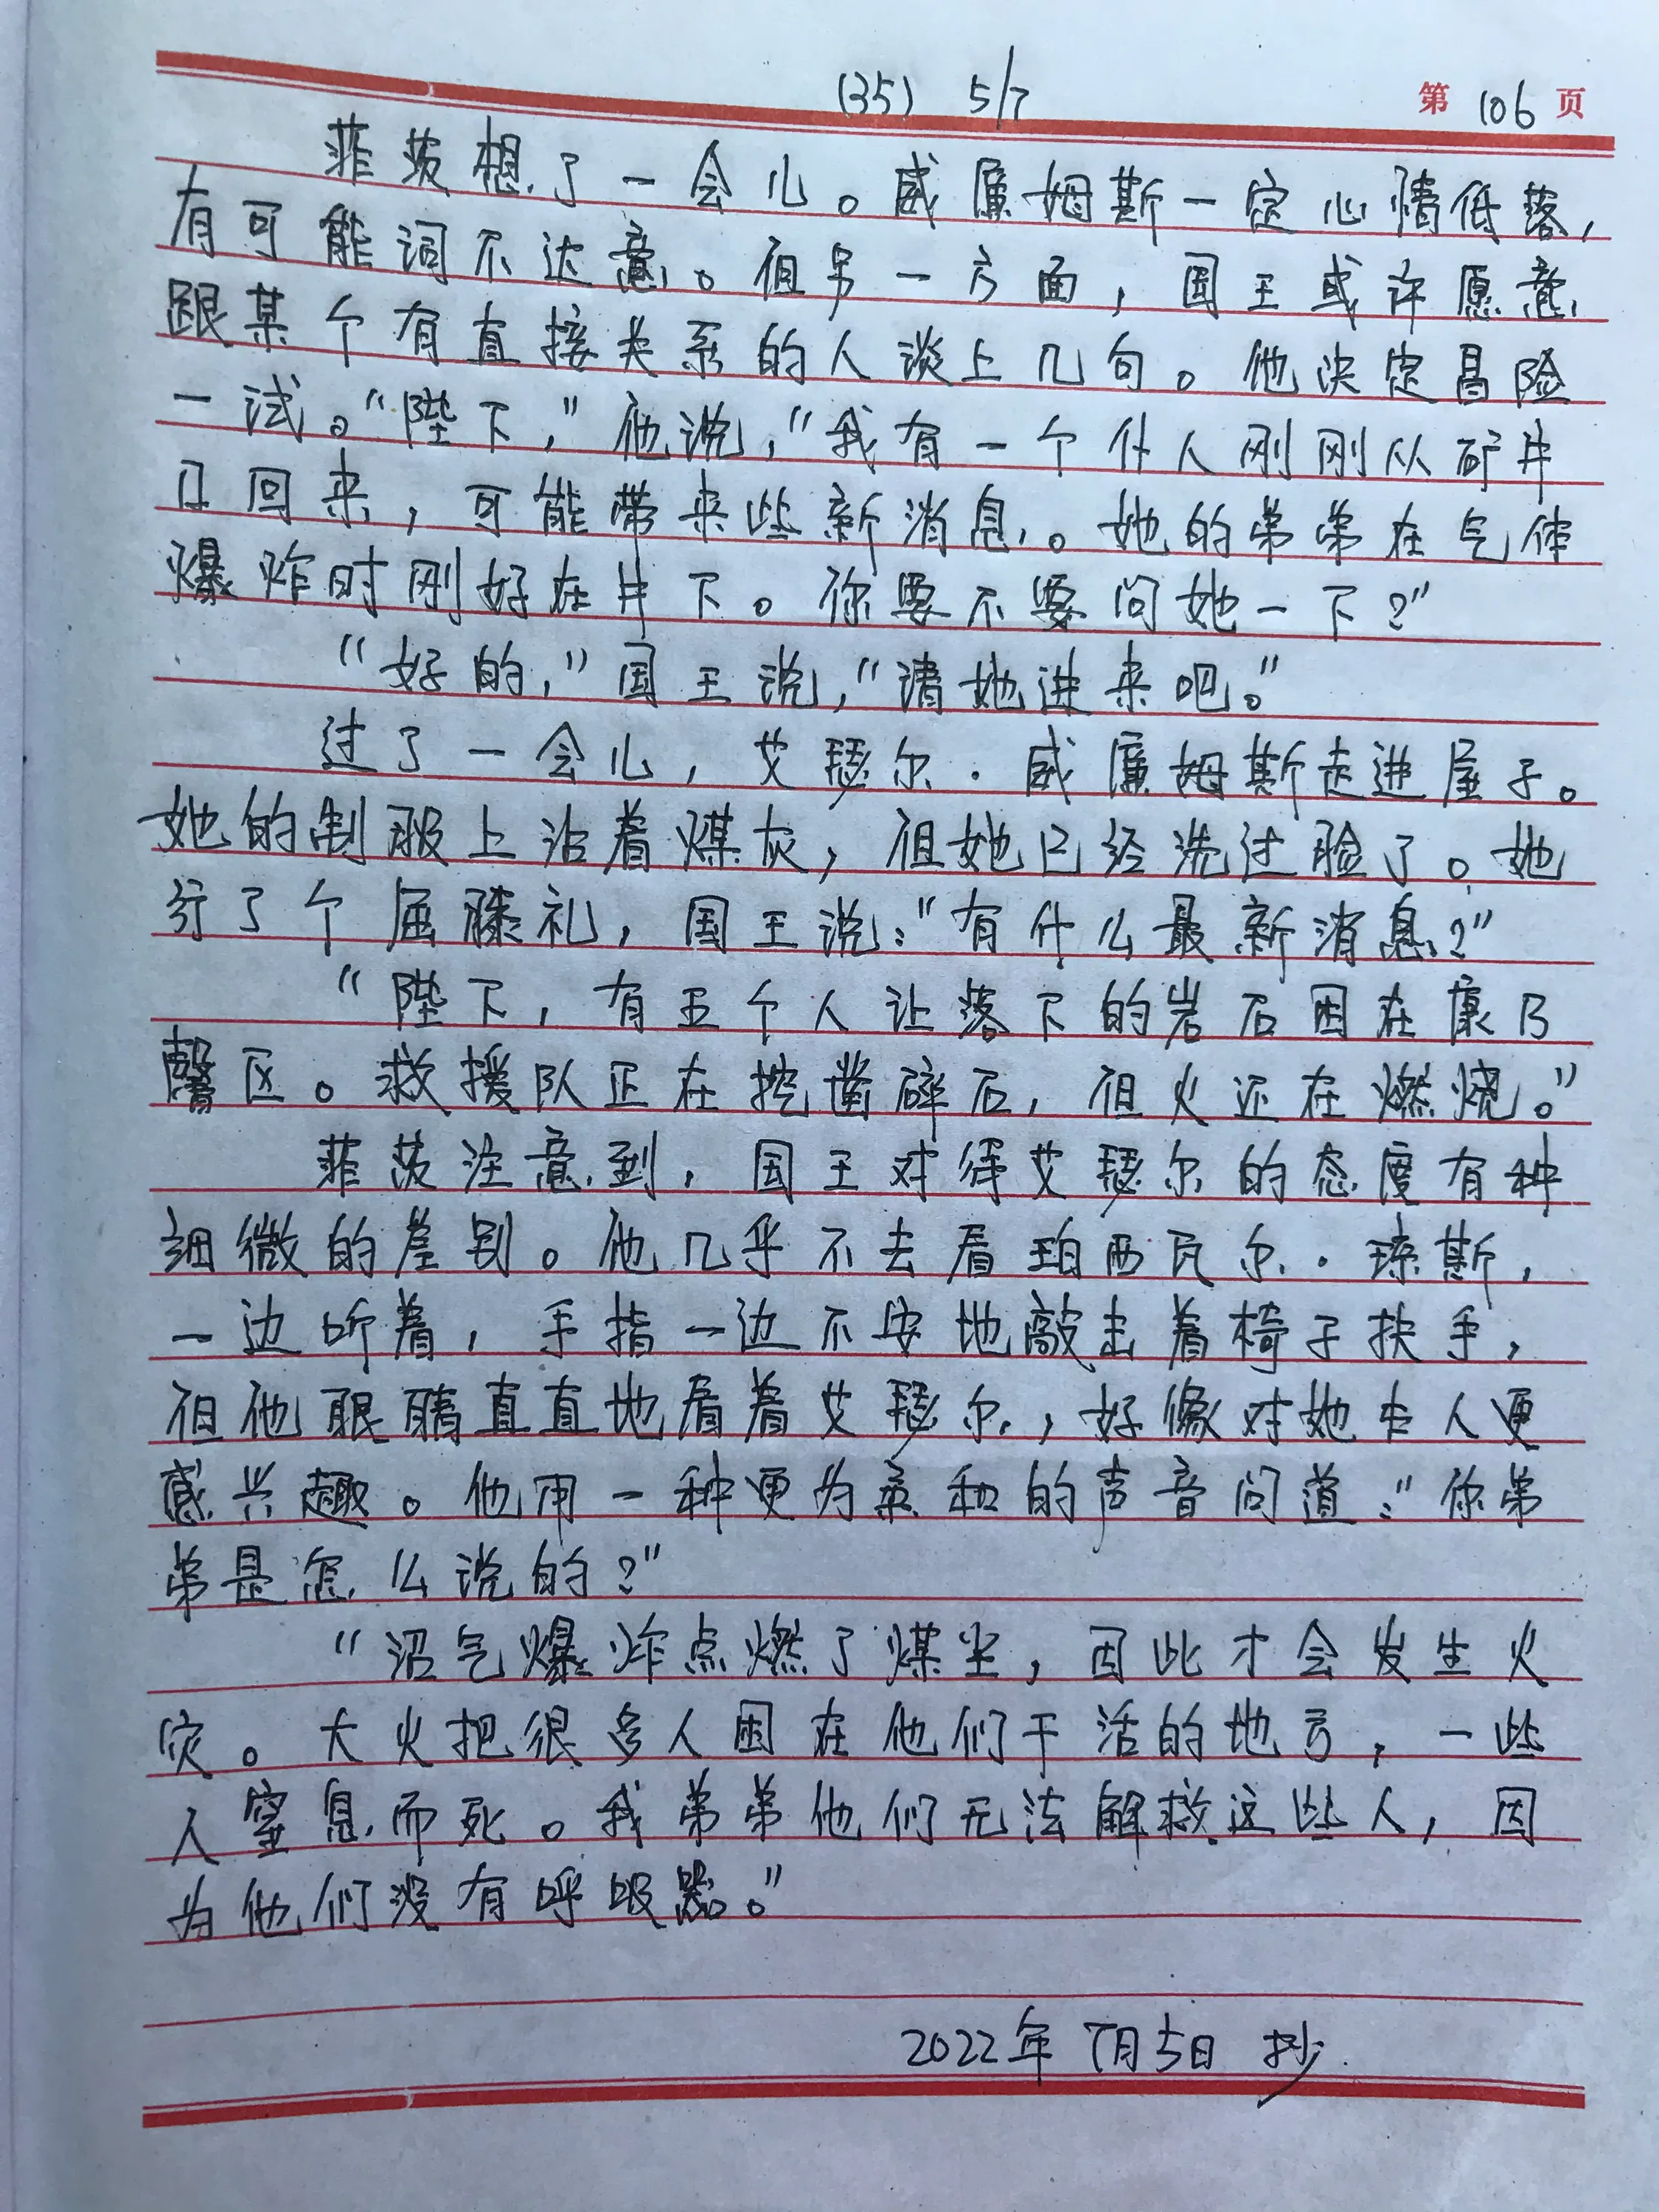 (35) 5/7 第 106 页
菲茨想了一会儿。威廉姆斯一定心情低落,
有可能词不达意。但另一方面,国王或许愿意
跟某个有直接关系的人谈上几句。他决定冒险
一试。“陛下,”他说,“我有一个仆人刚刚从矿井
口回来,可能带来些新消息。她的弟弟在气体
爆炸时刚好在井下。你要不要问她一下?”
“好的,”国王说,“请她进来吧。”
过了一会儿,艾瑟尔·威廉姆斯走进屋子。
她的制服上沾着煤灰,但她已经洗过脸了。她
行了个屈膝礼,国王说:“有什么最新消息?”
“陛下,有五个人让落下的岩石困在康乃
馨区。救援队正在挖凿碎石,但火还在燃烧。”
菲茨注意到,国王对待艾瑟尔的态度有种
细微的差别。他几乎不去看珀西瓦尔·琼斯,
一边听着,手指一边不安地敲击着椅子扶手,
但他眼睛直直地看着艾瑟尔,好像对她本人更
感兴趣。他用一种更为柔和的声音问道:“你弟
弟是怎么说的?”
“沼气爆炸点燃了煤尘,因此才会发生火
灾。大火把很多人困在他们干活的地方,一些
人窒息而死。我弟弟他们无法解救这些人,因
为他们没有呼吸器。”
2022年7月5日 抄